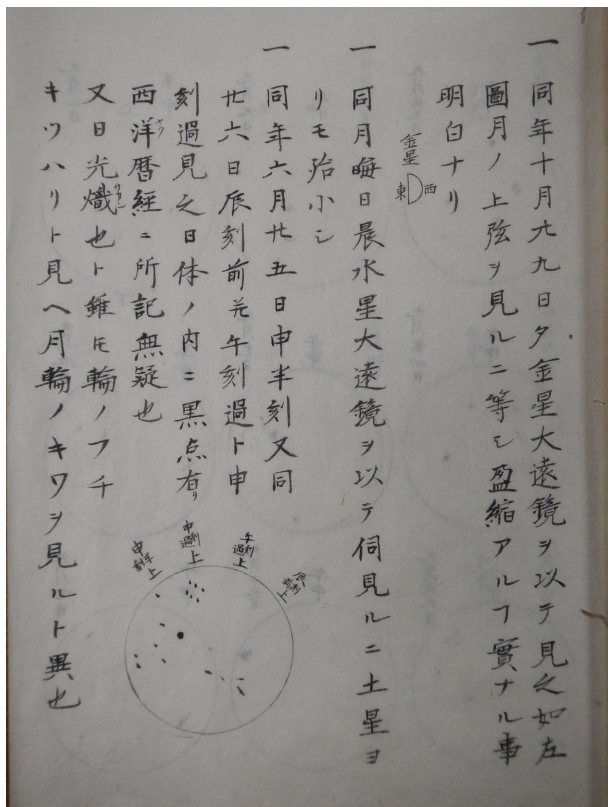 一 同年十月廿九日夕金星大遠鏡ヲ以テ見之如左
圖月ノ上弦ヲ見ルニ等シ盈縮アルヿ實ナル事
明白ナリ
金星
西
東
一 同月晦日晨水星大遠鏡ヲ以テ伺見ルニ土星ヨ
リモ殆小シ
一 同年六月廿五日申半刻又同
廿六日辰刻前午刻過ト申
刻過見之日体ノ内ニ黒点有リ
西洋暦経ニ所記無疑也
又日光熾也ト雖モ輪ノフチ
キツハリト見ヘ月輪ノキワヲ見ルト異也
辰刻前上
午刻過上
申刻過上
申半刻上